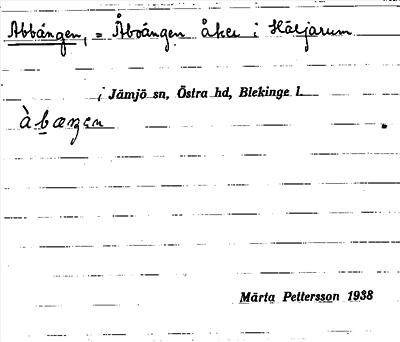 Abbängen, = Åboängen åker i Håljarum
i Jämjö sn, Östra hd, Blekinge l.
àbæŋen
Märta Pettersson 1938